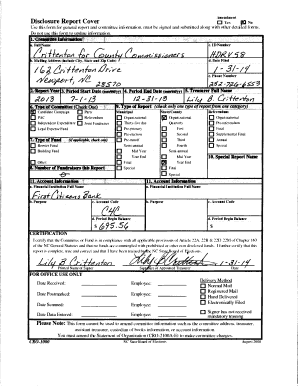 Disclosure Report Cover
Amendment
Yes No
Use this form for general report and committee information, must be signed and submitted along with other detailed forms.
Do not use this form to update information.
1. Committee Information
a. Full Name
c. ID Number
Crittenton for County Commissioners
HDRV58
b. Mailing Address (include City, State and Zip Code)
d. Date Filed
162 Crittenton Drive
1-31-14
Newport, NC
e. Phone Number
28570
2. Report Year
3. Period Start Date
4. Period End Date
5. Treasurer Full Name
2013
7-1-13
12-31-13
Lily B Crittenton
6. Type of Committee (Check One)
9. Type of Report (check only one type of report from one category)
Candidate Campaign
Party
Municipal
State/County
Referendum
PAC
Referendum
Organizational
Organizational
Organizational
Independent Expenditure
Joint Fundraiser
Thirty-five day
Quarterly
Pre-referendum
Legal Expense Fund
Pre-primary
First
Final
Pre-election
Second
Supplemental Final
7. Type of Fund
(if applicable, check one)
Pre-runoff
Third
Annual
Booster Fund
Semi-annual
Fourth
Special
Building Fund
Mid Year
Semi-annual
Year End
Mid Year
10. Special Report Name
Other:
Final
Year End
8. Number of Fundraisers this Report
Special
Final
Special
11. Account Information
11. Account Information
a. Financial Institution Full Name
a. Financial Institution Full Name
First Citizens Bank
b. Purpose
c. Account Code
b. Purpose
c. Account Code
d. Period Begin Balance
d. Period Begin Balance
$ 695.56
$
CERTIFICATION
I certify that the Committee or Fund is in compliance with all applicable provisions of Article 22A, 22B & 22D-22M of Chapter 163
of the NC General Statutes and that no funds are commingled with prohibited or other non-disclosed funds. I further certify that this
report is complete, true and correct
Lily B Crittenton
1-31-14
Printed Name of Signer
Signature of Appointed Treasurer
Date
FOR OFFICE USE ONLY
Date Received:
Employee:
Delivery Method
Normal Mail
Date Postmarked:
Employee:
Registered Mail
Hand Delivered
Date Scanned:
Employee:
Electronically Filed
Date Data Entered:
Employee:
Signer has not received
mandatory training
Please Note: This form cannot be used to amend committee information such as the committee address, treasurer,
assistant treasurer, custodian of books information, or account information.
You must amend the Statement of Organization (CRO-2100A-E) to make committee changes.
CRO-1000
NC State Board of Elections
August 2008